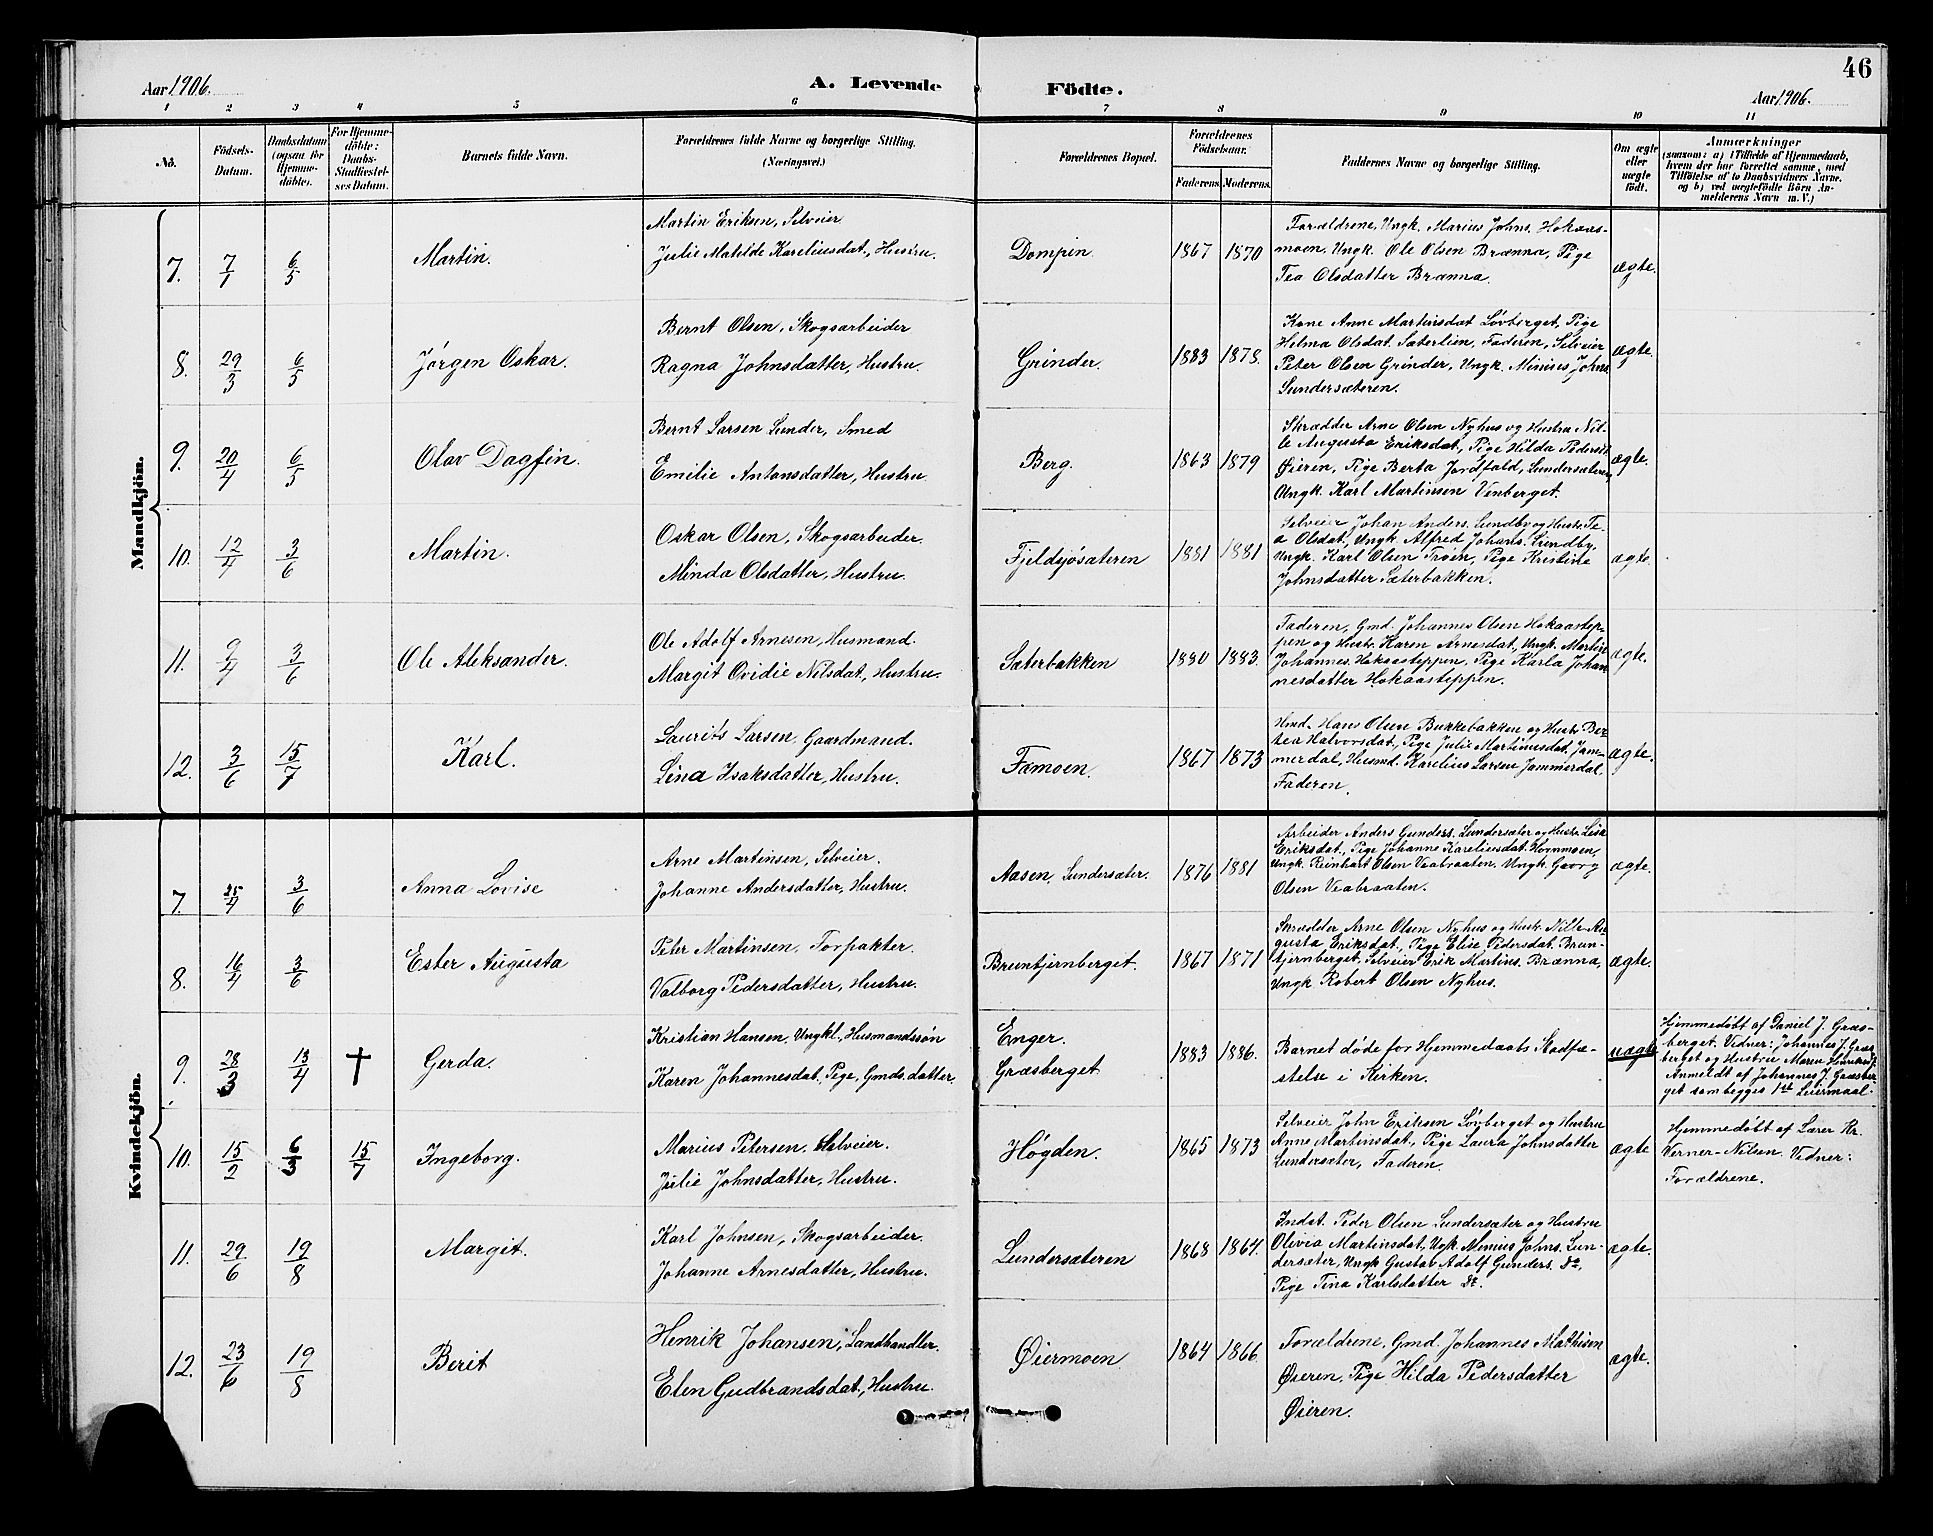 46
Aar 1906.
A. Levende
Födte.
Aar 1906.
1 2 3 4 5 6 7 8 9 10 11
No.
Födsels-
Datum.
Daabsdatum
(ogsaa for
Hjemme-
döbte).
For Hjemme-
döbte:
Daabs-
Stadfæstel-
ses Datum.
Barnets fulde Navn.
Forældrenes fulde Navne og borgerlige Stilling.
(Næringsvei.)
Forældrenes Bopæl.
Forældrenes
Födselsaar.
Faderens. Moderens.
Faddernes Navne og borgerlige Stilling.
Om ægte
eller
uægte
født.
Anmærkninger
(saasom: a) i Tilfælde af Hjemmedaab,
hvem der har forrettet samme, med
Tilföielse af to Daabsvidners Navne.
og b) ved uægtefödte Börn An-
melderens Navn m. V.)
Mandkjön.
7. 7/1 6/5 Martin.
Martin Eriksen, Selveier
Julie Matilde Kareliusdat., Hustru.
Dompin. 1867 1870
Forældrene, Ungk. Marius Johns. Hokaas-
moen, Ungk. Ole Olsen Brænna, Pige
Tea Olsdatter Brænna.
ægte.
8. 29/3 6/5 Jørgen Oskar.
Bernt Olsen, Skogsarbeider
Ragna Johnsdatter, Hustru.
Grinder. 1883 1878.
Kone Anne Martinsdat Lövberget, Pige
Helma Olsdat. Sæterlien, Faderen, Selveier
Peter Olsen Grinder, Ungk. Minius Johns.
Lundersæteren.
ægte.
9. 20/4 6/5 Olav Dagfin.
Bernt Larsen Lunder, Smed
Emilie Antonsdatter, Hustru.
Berg. 1863 1879
Skrædder Arne Olsen Nyhus og Hustru Nil-
le Augusta Eriksdat., Pige Hilda Pedersdt.
Øieren, Pige Berta Jordfald, Lundersæteren,
Ungk. Karl Martinsen Venberget.
ægte.
10. 12/4 3/6 Martin.
Oskar Olsen, Skogsarbeider.
Minda Olsdatter, Hustru.
Fjeldsjösæteren 1881 1881
Selveier Johan Anders. Lundby og Hustr. Te-
a Olsdat., Ungk. Alfred Johans. Lundby,
Ungk. Karl Olsen Trøen, Pige Kristine
Johnsdatter Sæterbakken.
ægte.
11. 9/4 3/6 Ole Aleksander.
Ole Adolf Arnesen, Husmand.
Margit Ovidie Nilsdat., Hustru.
Sæterbakken 1880 1883.
Faderen, Gmd. Johannes Olsen Hokaastep-
pen og Hustr. Karen Arnesdat., Ungk. Martin
Johannes. Hokaasteppen, Pige Karla Johan-
nesdatter Hokaasteppen.
ægte.
12. 3/6 15/7 Karl.
Laurits Larsen, Gaardmand.
Lina Isaksdatter, Hustru.
Famoen. 1867 1873
Hmd. Hans Olsen Bukkebakken og Hustr. Ber-
tea Halvorsdat., Pige Julie Martinusdat. Jam-
merdal, Husmd. Karelius Larsen Jammerdal,
Faderen.
ægte.
Kvindekjön.
7. 25/4 3/6 Anna Lovise
Arne Martinsen, Selveier.
Johanne Andersdatter, Hustru.
Aasen, Lundersæter. 1876 1881
Arbeider Anders Gunders. Lundersæter og Hustr. Lisa
Eriksdat., Pige Johanne Kareliusdat. Hornmoen,
Ungk. Reinhart Olsen Veabraaten. Ungk. Georg
Olsen Veabraaten.
ægte.
8. 16/4 3/6 Ester Augusta
Peter Martinsen, Forpakter.
Valborg Pedersdatter, Hustru.
Bruntjernberget. 1867 1871
Skrædder Arne Olsen Nyhus og Hustr. Nille Au-
gusta Eriksdat., Pige Elise Pedersdat. Brun-
tjernberget. Selveier Erik Martins. Brænna,
Ungk Robert Olsen Nyhus.
ægte.
9. 28/3 13/4 † Gerda.
Kristian Hansen, Ungkl., Husmandssön
Karen Johannesdat., Pige, Gmds. datter.
Enger.
Græsberget 1883 1886.
Barnet døde før Hjemmedaabs Stadfæ-
stelse i Kirken.
uægte
Hjemmedøbt af Daniel J. Græs-
berget. Vidner: Johannes J. Græs-
berget og Hustru Maren
Anmeldt af Johannes J. Græsber-
get som begges 1ste Leiermaal.
10. 15/2 6/3 15/7 Ingeborg.
Marius Petersen, Selveier.
Julie Johnsdatter, Hustru.
Høgden. 1865 1873
Selveier John Eriksen Lövberget og Hustru
Anne Martinsdat., Pige Laura Johnsdatter
Lundersæter, Faderen.
ægte
Hjemmedöbt af Lærer Kr.
Verner-Nilsen. Vidner:
Forældrene.
11. 29/6 19/8 Margit.
Karl Johnsen, Skogsarbeider.
Johanne Arnesdatter, Hustru.
Lundersæteren 1868 1864.
Indst. Peder Olsen Lundersæter og Hustru
Olivia Martinsdat., Ungk. Minius Johns. Lun-
dersæter, Ungk Gustav Adolf Gunders. do,
Pige Tina Karlsdatter do.
ægte.
12. 23/6 19/8 Berit
Henrik Johansen, Landhandler.
Elen Gudbrandsdat., Hustru.
Øiermoen. 1864 1866.
Forældrene, Gmd. Johannes Mathisen
Øieren, Pige Hilda Pedersdatter
Øieren.
ægte.